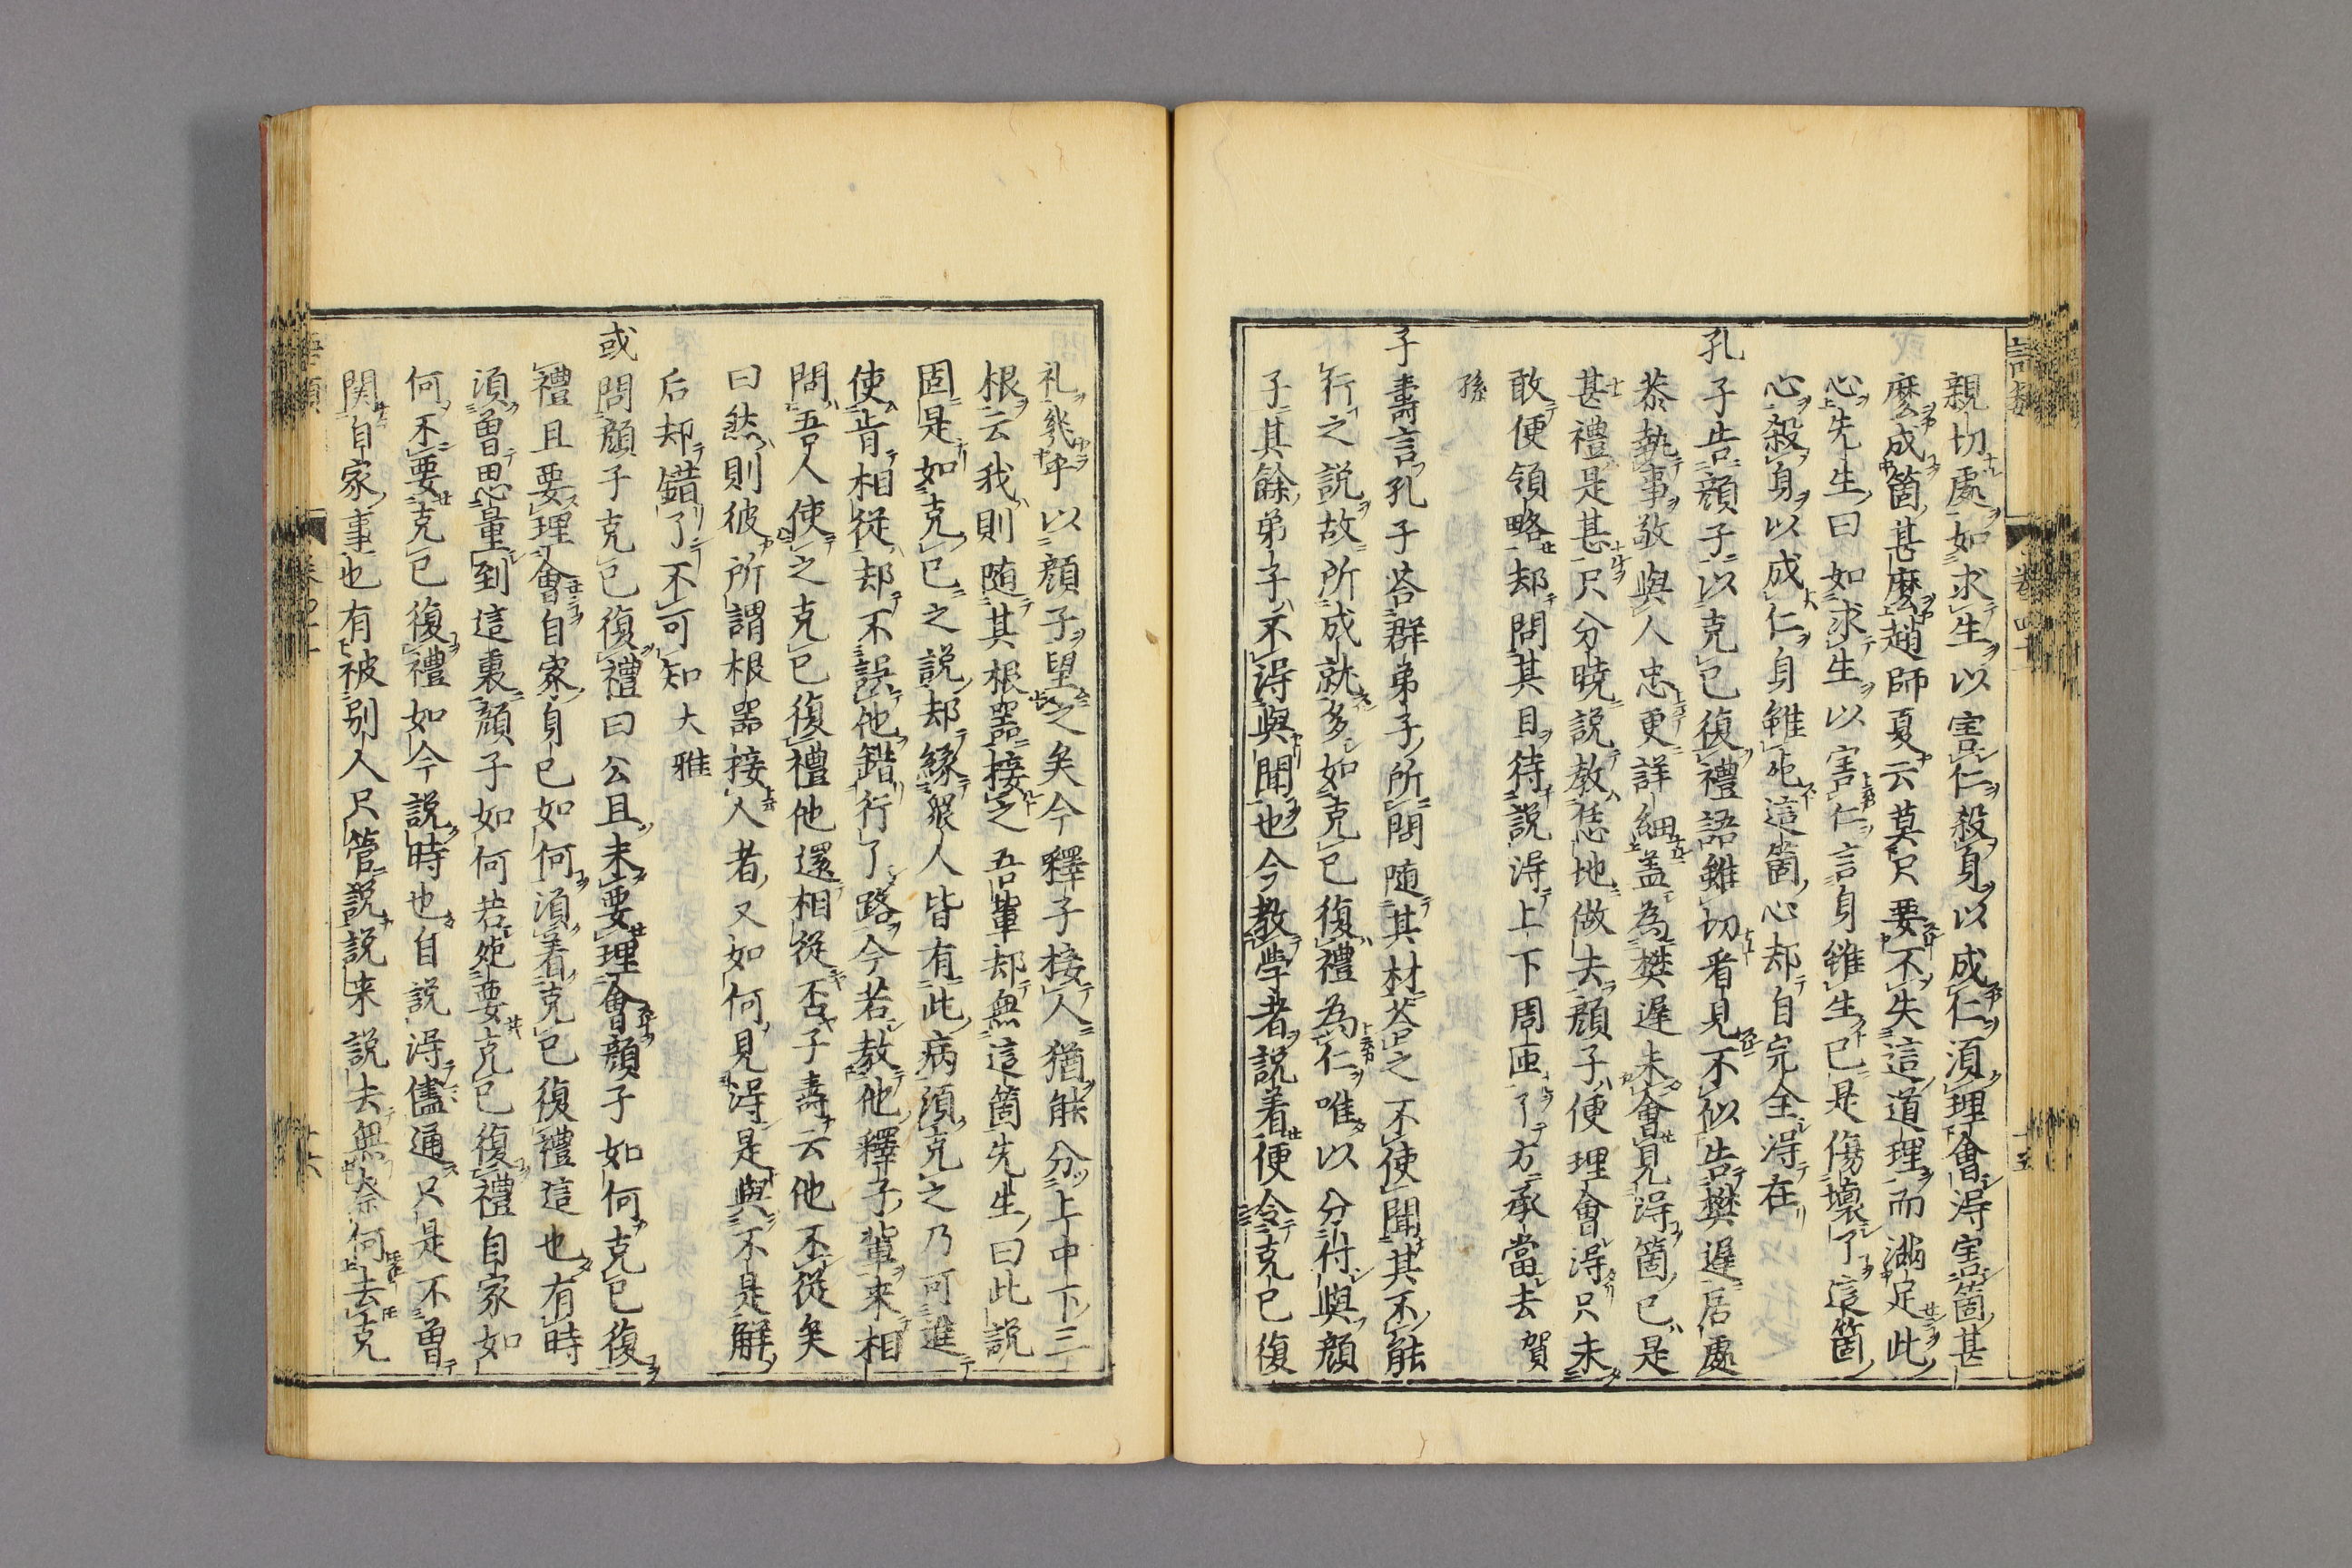 親切處如求生以害仁殺身以成仁須理會得害箇甚
麼成箇甚麼趙師夏云莫只要不失這道理而滿足此
心先生曰如求生以害仁言身雖生已是傷壞了這箇
心殺身以成仁身雖死這箇心却自完全得在
孔子告顏子以克己復禮語雖切看見不似告樊遲居處
恭執事敬與人忠更詳細盖為樊遲未會見得箇已是
甚禮是甚只分曉說教恁地做去顏子便理會得只未
敢便領略却問其目待說得上下周匝了方承當去賀
孫
子壽言孔子荅群弟子所問随其材荅之不使聞其不能
行之說故所成就多如克己復禮為仁唯以分付與顏
子其餘弟子不得與聞也今教學者說着便令克己復
礼幾乎以顏子望之矣今釋子接人猶能分上中下三
根云我則随其根器接之吾軰却無這箇先生曰此說
固是如克己之說却緣眾人皆有此病須克之乃可進
使肯相從却不誤他錯行了路今若教他釋子軰來相
問吾人使之克己復禮他還相從否子壽云他不從矣
曰然則彼所謂根器接人者又如何見得是與不是解
后却錯了不可知大雅
或問顏子克己復禮曰公且未要理會顏子如何克己復
禮且要理會自家身己如何須着克己復禮這也有時
須曾思量到這裏顏子如何若死要克己復禮自家如
何不要克己復禮如今說時也自說得儘通只是不曾
関自家事也有被別人只管說說来說去無奈何去克